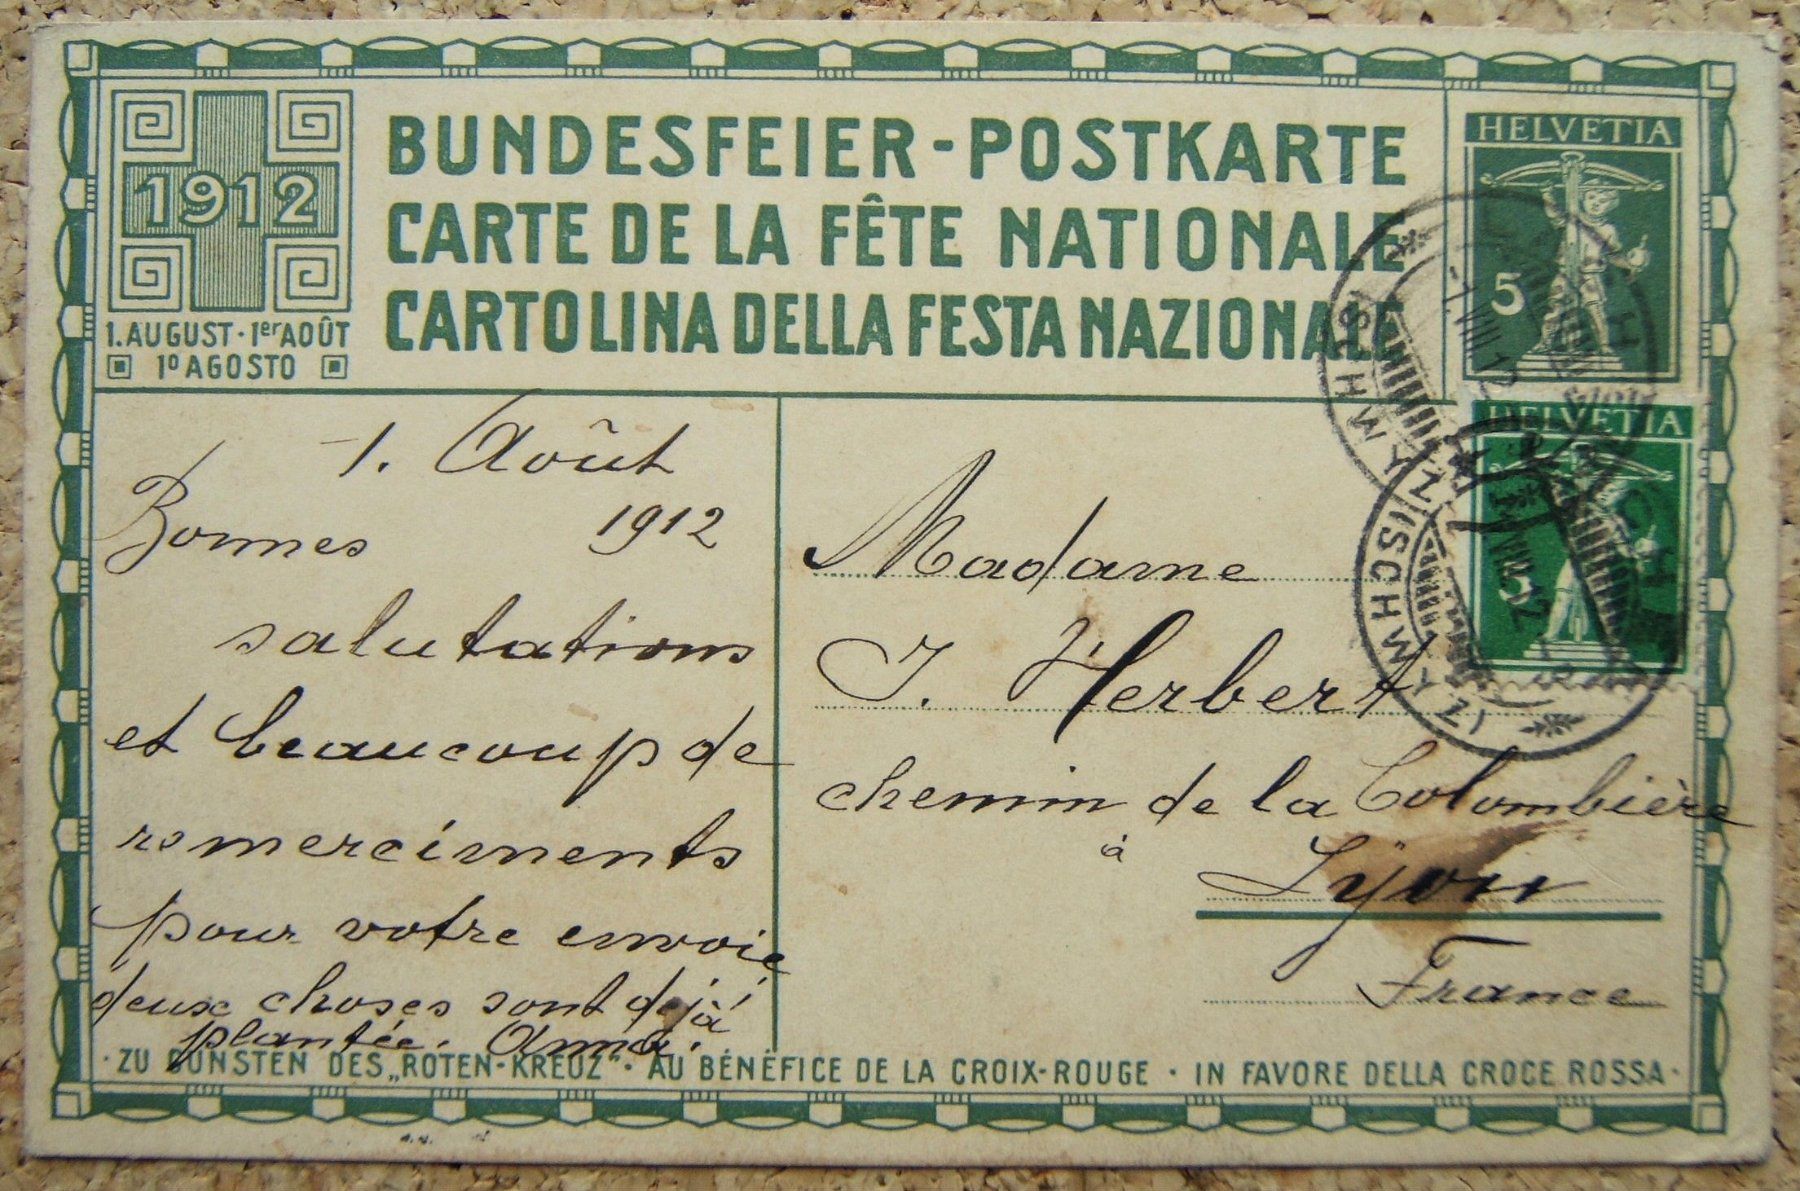 1912
1. AUGUST · 1er AOÛT
1º AGOSTO
BUNDESFEIER - POSTKARTE
CARTE DE LA FÊTE NATIONALE
CARTOLINA DELLA FESTA NAZIONALE
HELVETIA
5
HELVETIA
5
1. Août
1912
Bonnes
salutations
et beaucoup de
remerciments
pour votre envoie
deux choses sont déjà
plantée. Anna.
Madame
J. Herbert
chemin de la Colombière
à
Lyon
France
· ZU GUNSTEN DES „ROTEN-KREUZ" · AU BÉNÉFICE DE LA CROIX-ROUGE · IN FAVORE DELLA CROCE ROSSA ·